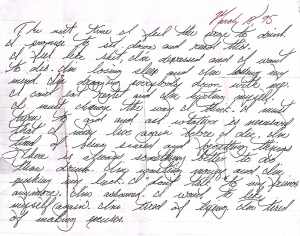 March 8, '95
The next time I feel the urge to drink
I promise to sit down and read this.
I feel like shit, I'm depressed and I want
to die. I'm losing sleep and I'm losing my
mind. I'm dragging everybody down with me.
I can't eat right and I'm hating myself.
I must change the way I think. I must
turn to god and ask whatever is necessary
that I may live again before I die. I'm
tired of being scared and
There is always something better to do
than drink. I'm wasting money and I'm
pushing my luck. I don't talk to my friends
anymore. I'm ashamed. I want to like
myself again. I'm tired of lying. I'm tired
of making excuses.